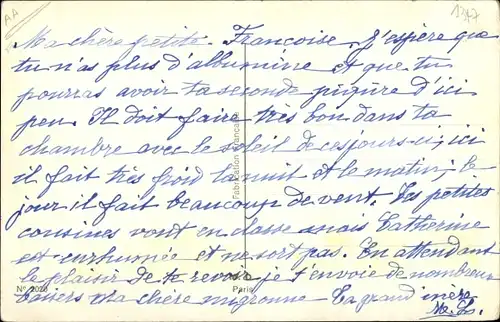 AA
1347
Ma chère petite Françoise. J'espère que
tu n'as plus d'albumine et que tu
pourras avoir ta seconde piqûre d'ici
peu. Il doit faire très bon dans ta
chambre avec le soleil de ces jours-ci, ici
il fait très froid la nuit et le matin; le
jour il fait beaucoup de vent. Les petites
cousines vont en classe mais Catherine
est enrhumée et ne sort pas. En attendant
le plaisir de te revoir je t'envoie de nombreux
baisers Ma chère mignonne Ta grand'mère
Fabrication Française
Nº 2028
Paris